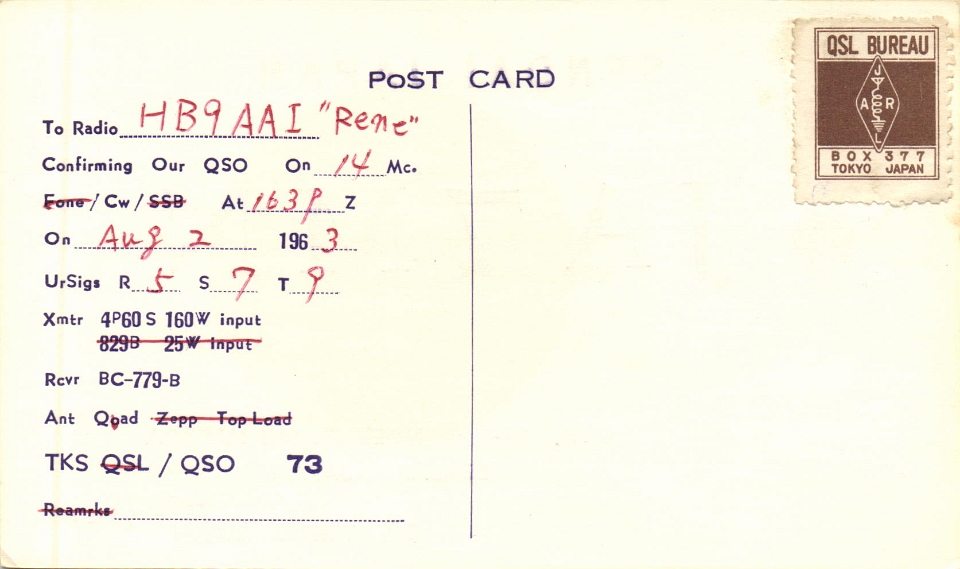 POST CARD
To Radio HB9AAI "Rene"
Confirming Our QSO On 14 Mc.
Fone / Cw / SSB At 1639 Z
On Aug 2 1963
UrSigs R 5 S 7 T 9
Xmtr 4P60S 160W input
829B 25W input
Rcvr BC-779-B
Ant Quad Zepp Top Load
TKS QSL / QSO 73
Reamrks
QSL BUREAU
J
A R
L
BOX 377
TOKYO JAPAN